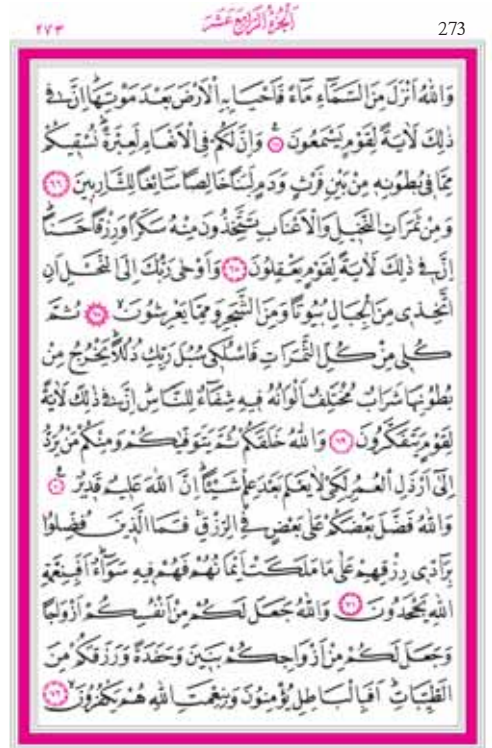 ٢٧٣ اَلْجُزْءُ الرَّابِعَ عَشَرَ 273
وَاللّٰهُ اَنْزَلَ مِنَ السَّمَٓاءِ مَٓاءً فَاَحْيَا بِهِ الْاَرْضَ بَعْدَ مَوْتِهَاۜ اِنَّ ف۪ي
ذٰلِكَ لَاٰيَةً لِقَوْمٍ يَسْمَعُونَ۟ ﴿٦٥﴾ وَاِنَّ لَكُمْ فِي الْاَنْعَامِ لَعِبْرَةًۜ نُسْق۪يكُمْ
مِمَّا ف۪ي بُطُونِه۪ مِنْ بَيْنِ فَرْثٍ وَدَمٍ لَبَناً خَالِصاً سَٓائِغاً لِلشَّارِب۪ينَ ﴿٦٦﴾
وَمِنْ ثَمَرَاتِ النَّخ۪يلِ وَالْاَعْنَابِ تَتَّخِذُونَ مِنْهُ سَكَراً وَرِزْقاً حَسَناًۜ
اِنَّ ف۪ي ذٰلِكَ لَاٰيَةً لِقَوْمٍ يَعْقِلُونَ ﴿٦٧﴾ وَاَوْحٰى رَبُّكَ اِلَى النَّحْلِ اَنِ
اتَّخِذ۪ي مِنَ الْجِبَالِ بُيُوتاً وَمِنَ الشَّجَرِ وَمِمَّا يَعْرِشُونَۙ ﴿٦٨﴾ ثُمَّ
كُل۪ي مِنْ كُلِّ الثَّمَرَاتِ فَاسْلُك۪ي سُبُلَ رَبِّكِ ذُلُلاًۜ يَخْرُجُ مِنْ
بُطُونِهَا شَرَابٌ مُخْتَلِفٌ اَلْوَانُهُ ف۪يهِ شِفَٓاءٌ لِلنَّاسِۜ اِنَّ ف۪ي ذٰلِكَ لَاٰيَةً
لِقَوْمٍ يَتَفَكَّرُونَ ﴿٦٩﴾ وَاللّٰهُ خَلَقَكُمْ ثُمَّ يَتَوَفّٰيكُمْ وَمِنْكُمْ مَنْ يُرَدُّ
اِلٰٓى اَرْذَلِ الْعُمُرِ لِكَيْ لَا يَعْلَمَ بَعْدَ عِلْمٍ شَيْـٔاًۜ اِنَّ اللّٰهَ عَل۪يمٌ قَد۪يرٌ۟ ﴿٧٠﴾
وَاللّٰهُ فَضَّلَ بَعْضَكُمْ عَلٰى بَعْضٍ فِي الرِّزْقِۚ فَمَا الَّذ۪ينَ فُضِّلُوا
بِرَٓادّ۪ي رِزْقِهِمْ عَلٰى مَا مَلَكَتْ اَيْمَانُهُمْ فَهُمْ ف۪يهِ سَوَٓاءٌۜ اَفَبِنِعْمَةِ
اللّٰهِ يَجْحَدُونَ ﴿٧١﴾ وَاللّٰهُ جَعَلَ لَكُمْ مِنْ اَنْفُسِكُمْ اَزْوَاجاً
وَجَعَلَ لَكُمْ مِنْ اَزْوَاجِكُمْ بَن۪ينَ وَحَفَدَةً وَرَزَقَكُمْ مِنَ
الطَّيِّبَاتِۜ اَفَبِالْبَاطِلِ يُؤْمِنُونَ وَبِنِعْمَتِ اللّٰهِ هُمْ يَكْفُرُونَۙ ﴿٧٢﴾